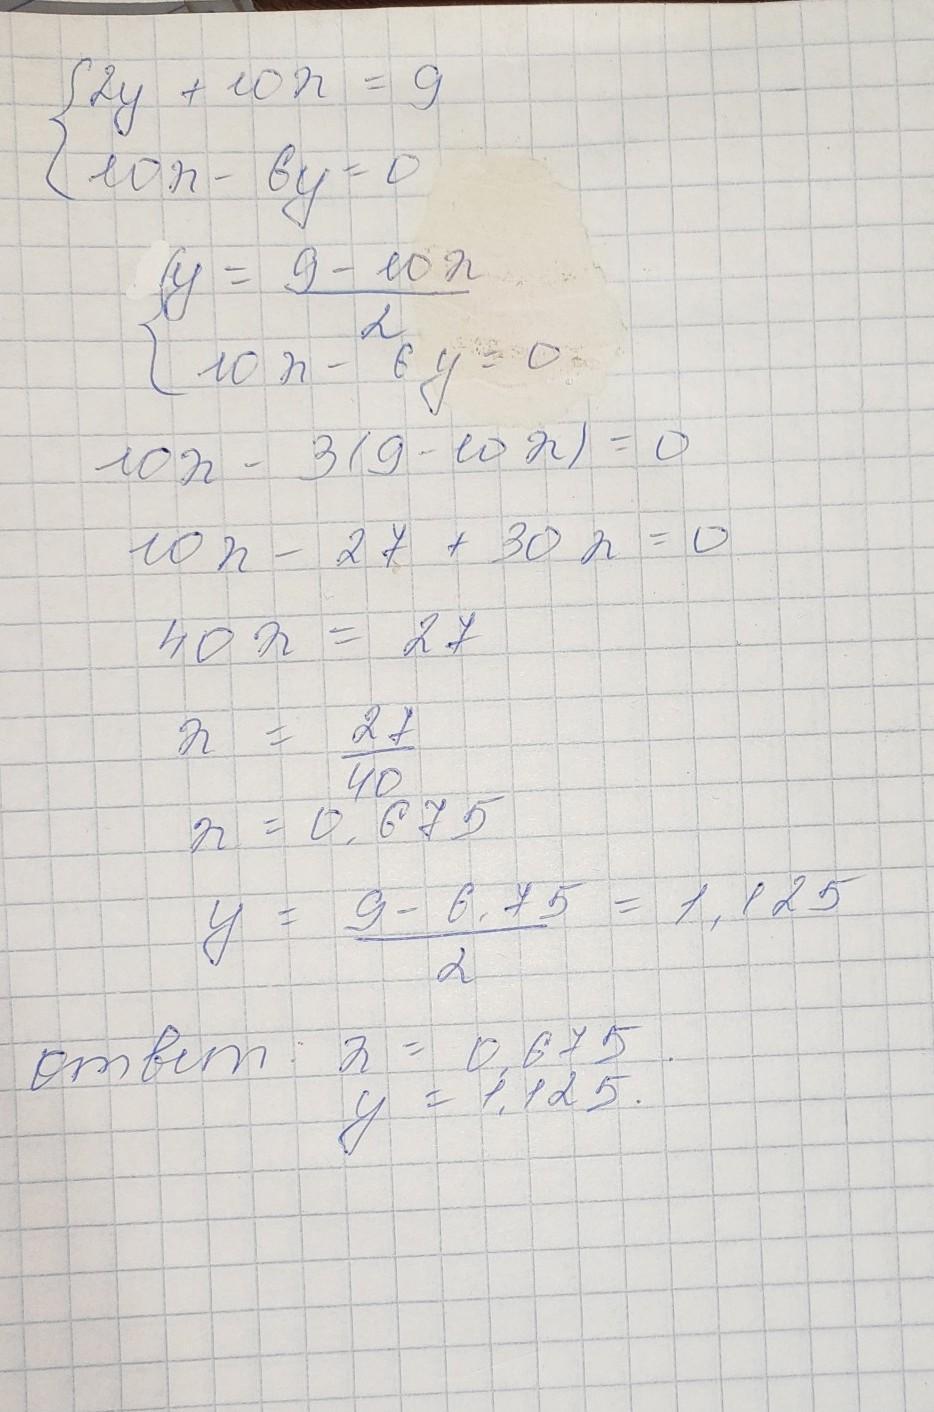 {2y + 10x = 9
{10x - 6y = 0
{y = (9 - 10x)/2
{10x - 6y = 0
10x - 3(9 - 10x) = 0
10x - 27 + 30x = 0
40x = 27
x = 27/40
x = 0,675
y = (9 - 6,75)/2 = 1,125
ответ: x = 0,675.
y = 1,125.